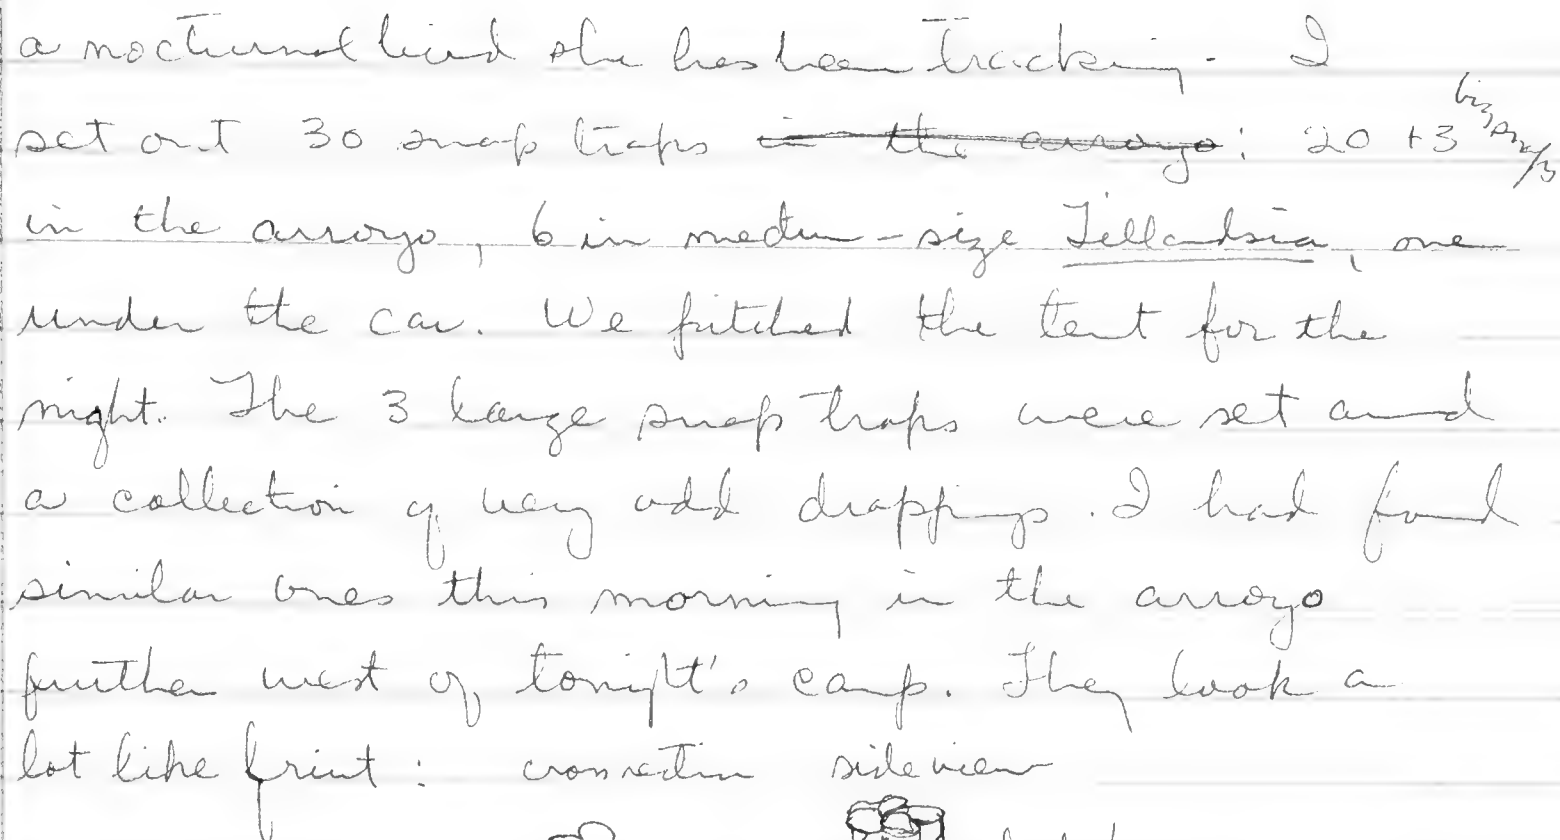 a nocturnal bird she has been tracking. I
set out 30 snap traps in the arroyo: 20 + 3 big
in the arroyo, 6 in medium-size Tillandsia, one
under the car. We pitched the tent for the
night. The 3 large snap traps were set around
a collection of very odd droppings. I had found
similar ones this morning in the arroyo
further west of tonight's camp. They look a
lot like fruit: cross section side view